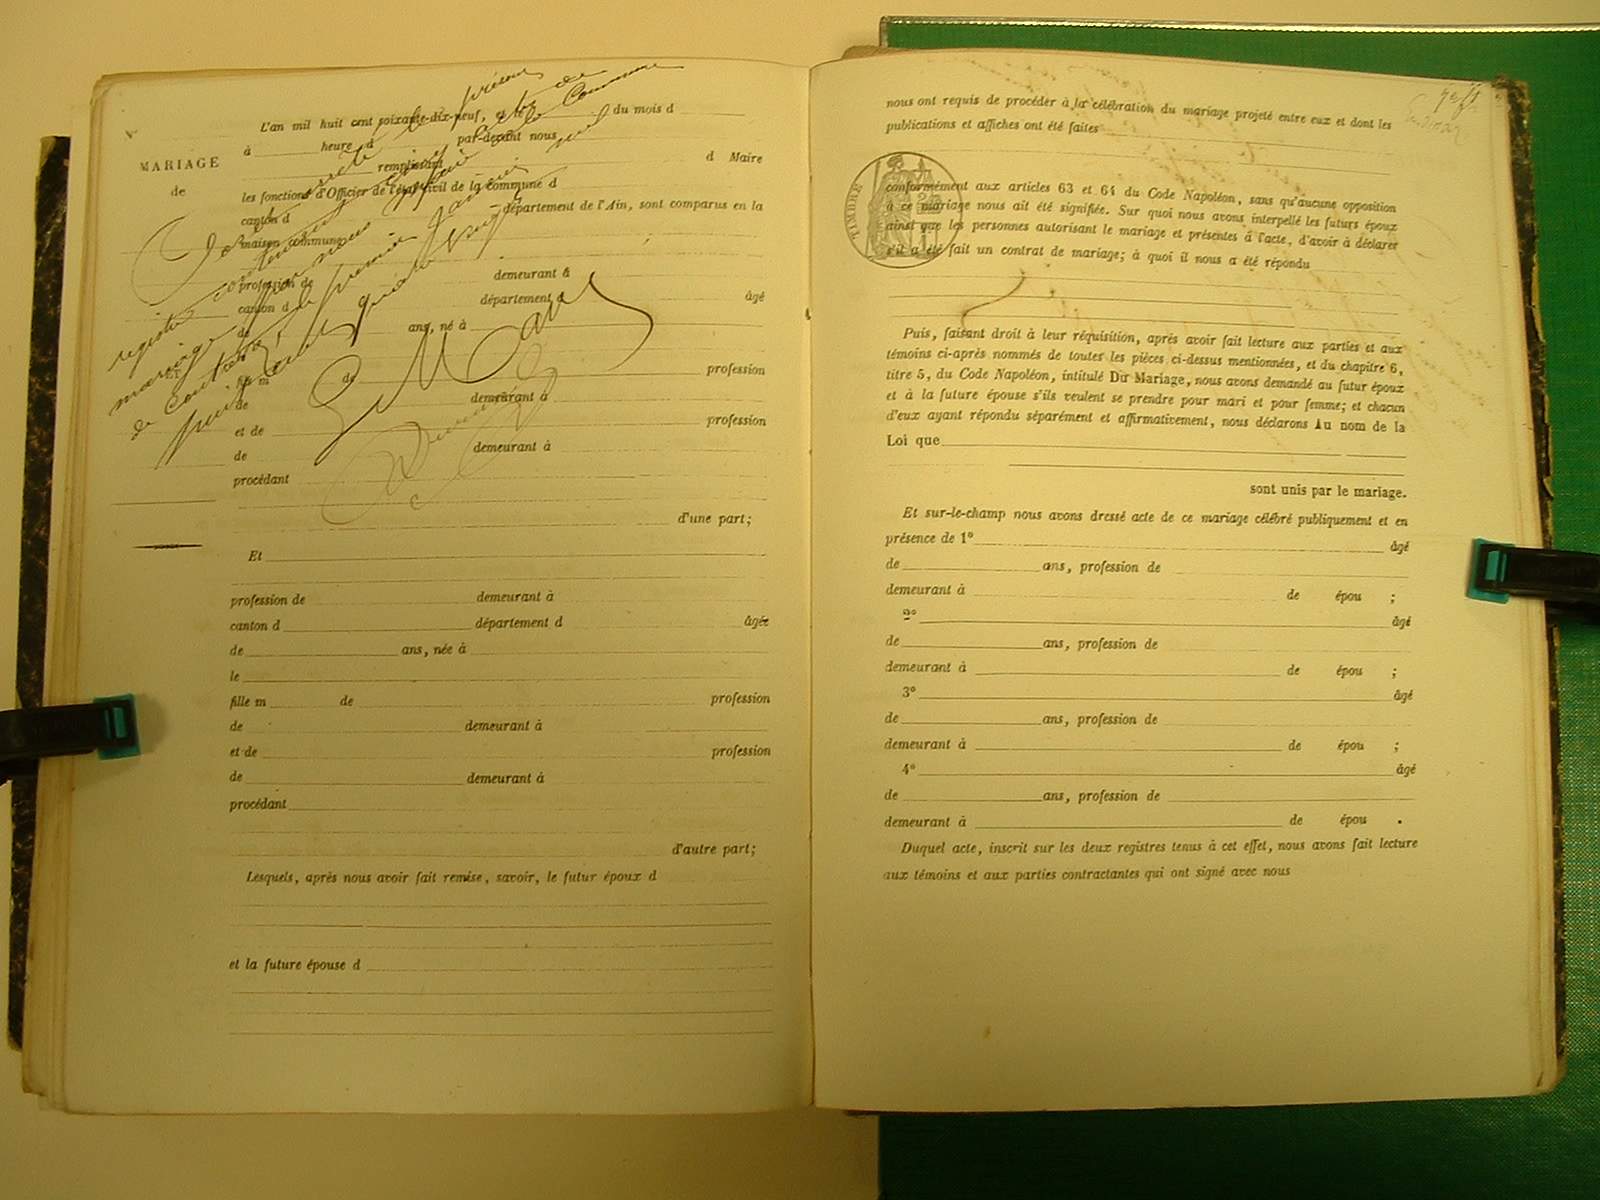 L'an mil huit cent soixante-dix-neuf, et le du mois d
à heure d par-devant nous
MARIAGE
remplissant d Maire
de
les fonctions d'Officier de l'état civil de la commune d
canton d département de l'Ain, sont comparus en la
maison commune
profession de demeurant à
canton d département d âgé
de ans, né à
ET
le
fils m de profession
de demeurant à
et de profession
de demeurant à
procédant
d'une part;
Et
profession de demeurant à
canton d département d âgée
de ans, née à
le
fille m de profession
de demeurant à
et de profession
de demeurant à
procédant
d'autre part;
Lesquels, après nous avoir fait remise, savoir, le futur époux d
et la future épouse d
le présent
registre contenant acte de
mariage par nous Maire de la Commune
de
premier Janvier mil
huit cent quatre vingt
nous ont requis de procéder à la célébration du mariage projeté entre eux et dont les
publications et affiches ont été faites
TIMBRE
conformément aux articles 63 et 64 du Code Napoléon, sans qu'aucune opposition
à ce mariage nous ait été signifiée. Sur quoi nous avons interpellé les futurs époux
ainsi que les personnes autorisant le mariage et présentes à l'acte, d'avoir à déclarer
s'il a été fait un contrat de mariage; à quoi il nous a été répondu
Puis, faisant droit à leur réquisition, après avoir fait lecture aux parties et aux
témoins ci-après nommés de toutes les pièces ci-dessus mentionnées, et du chapitre 6,
titre 5, du Code Napoléon, intitulé Du Mariage, nous avons demandé au futur époux
et à la future épouse s'ils veulent se prendre pour mari et pour femme; et chacun
d'eux ayant répondu séparément et affirmativement, nous déclarons Au nom de la
Loi que
sont unis par le mariage.
Et sur-le-champ nous avons dressé acte de ce mariage célébré publiquement et en
présence de 1° âgé
de ans, profession de
demeurant à de épou ;
2° âgé
de ans, profession de
demeurant à de épou ;
3° âgé
de ans, profession de
demeurant à de épou ;
4° âgé
de ans, profession de
demeurant à de épou .
Duquel acte, inscrit sur les deux registres tenus à cet effet, nous avons fait lecture
aux témoins et aux parties contractantes qui ont signé avec nous